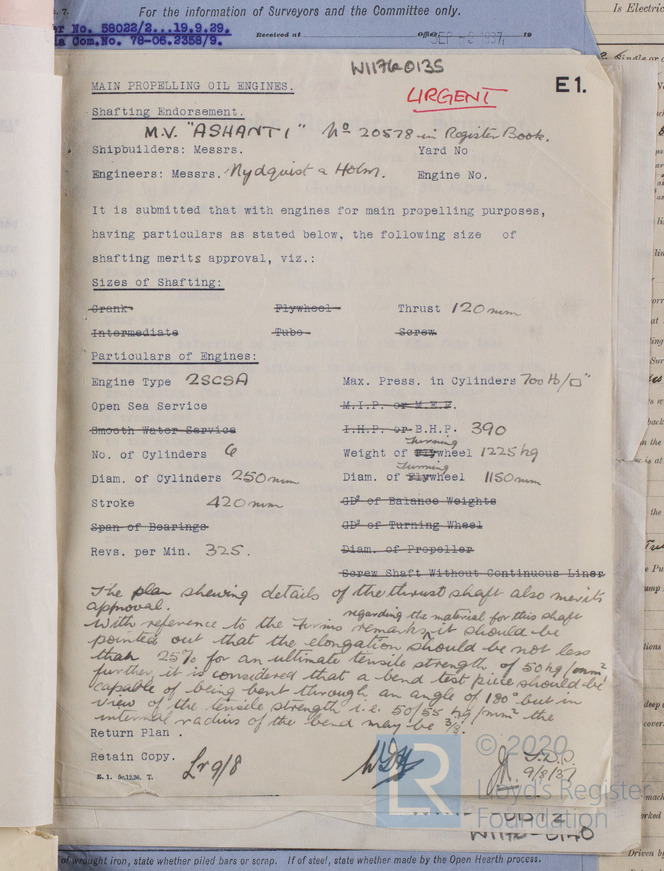 For the information of Surveyors and the Committee only.
Is Electric
No. 58022/2...19.9.29.
Com.No. 78-06.2358/9.
Received at
Office
19
W1176-0135
MAIN PROPELLING OIL ENGINES.
URGENT
E1.
Shafting Endorsement.
M.V. "ASHANTI" No 20578 in Register Book.
Shipbuilders: Messrs. Yard No
Engineers: Messrs. Nydquist & Holm. Engine No.
It is submitted that with engines for main propelling purposes,
having particulars as stated below, the following size of
shafting merits approval, viz.:
Sizes of Shafting:
Crank Flywheel Thrust 120 mm
Intermediate Tube Screw
Particulars of Engines:
Engine Type 2SCSA Max. Press. in Cylinders 700 lb/□"
Open Sea Service M.I.P. or M.E.P.
Smooth Water Service I.H.P. or B.H.P. 390
No. of Cylinders 6 Weight of Flywheel Turning 1225 kg
Diam. of Cylinders 250 mm Diam. of Flywheel Turning 1150 mm
Stroke 420 mm GD² of Balance Weights
Span of Bearings GD² of Turning Wheel
Revs. per Min. 325. Diam. of Propeller
Screw Shaft Without Continuous Liner
The plan shewing details of the thrust shaft also merits
approval.
With reference to the Firms remark regarding the material for this shaft it should be
pointed out that the elongation should be not less
than 25% for an ultimate tensile strength of 50 kg/mm²
further, it is considered that a bend test piece should be
capable of being bent through an angle of 180° but in
view of the tensile strength i.e. 50/55 kg/mm² the
internal radius of the bend may be
Return Plan.
Retain Copy.
Lr 9/8
9/8/37
E. 1. 5c.12.36. T.
© 2020
LR
Lloyd's Register
Foundation
W1176-0140
of wrought iron, state whether piled bars or scrap. If of steel, state whether made by the Open Hearth process.